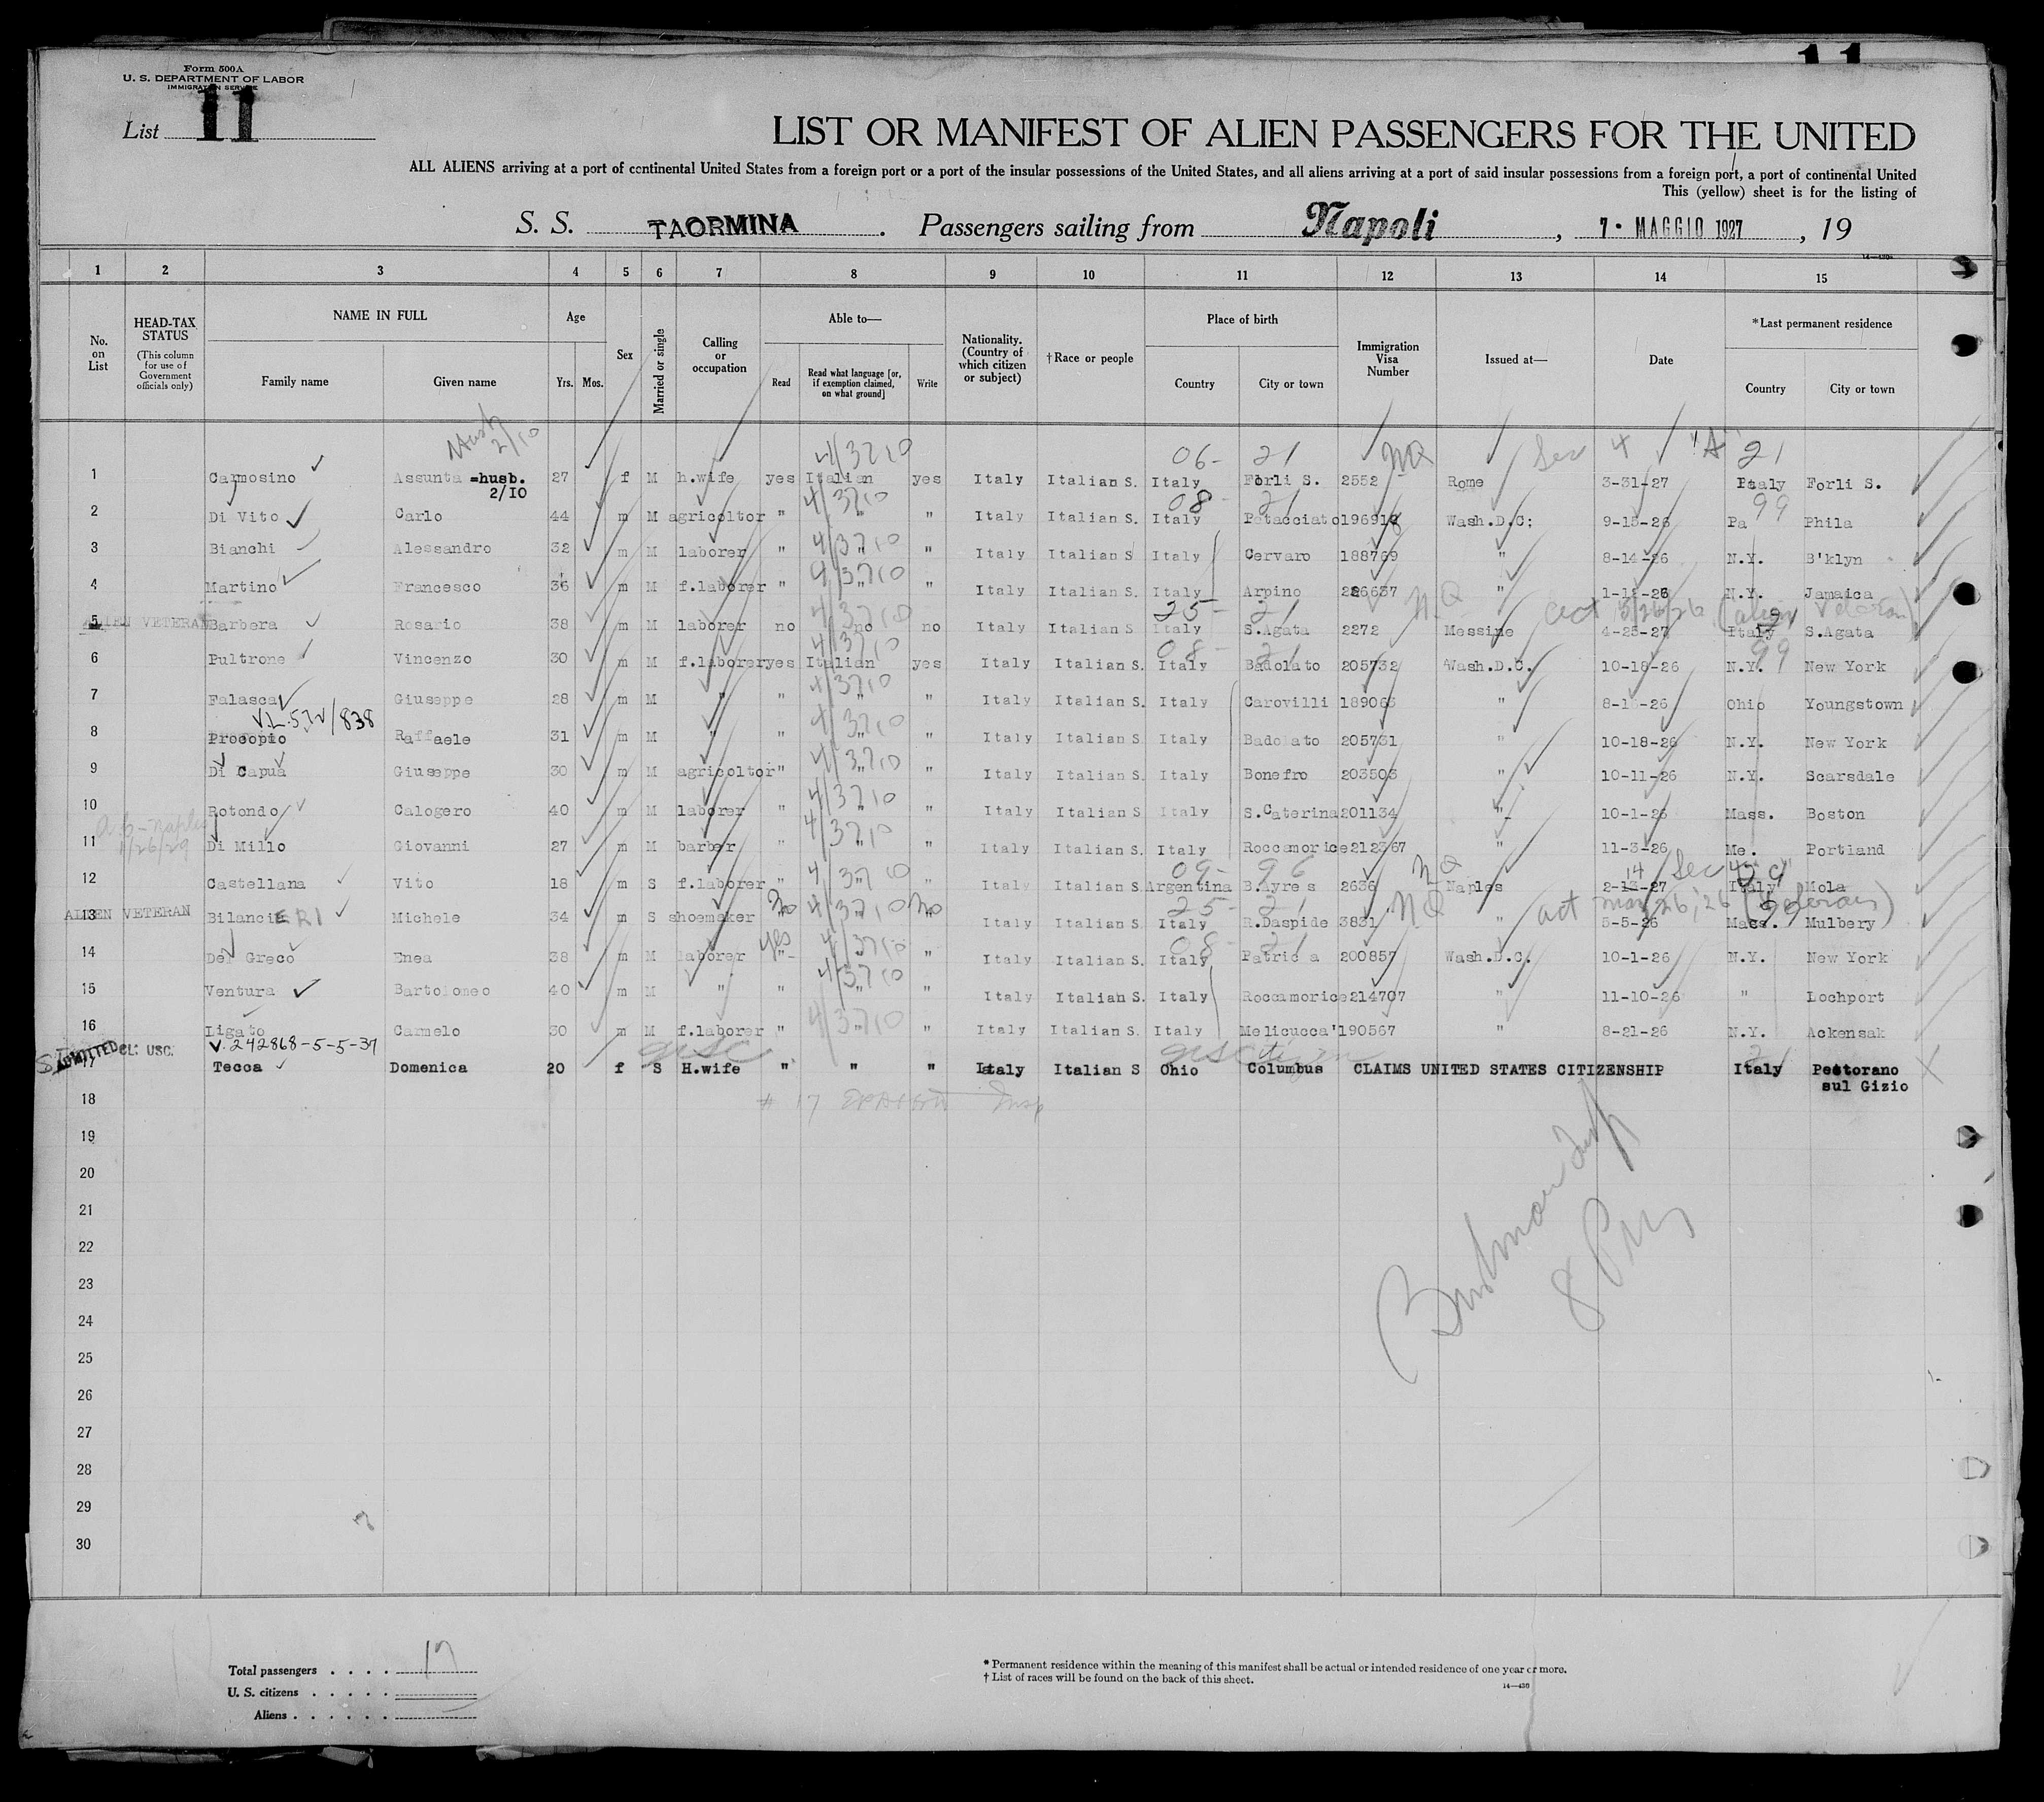 11
Form 500A
U. S. DEPARTMENT OF LABOR
IMMIGRATION SERVICE
List 11
LIST OR MANIFEST OF ALIEN PASSENGERS FOR THE UNITED
ALL ALIENS arriving at a port of continental United States from a foreign port or a port of the insular possessions of the United States, and all aliens arriving at a port of said insular possessions from a foreign port, a port of continental United
This (yellow) sheet is for the listing of
S. S. TAORMINA . Passengers sailing from Napoli , 7 · MAGGIO 1927 , 19
1 2 3 4 5 6 7 8 9 10 11 12 13 14 15
No. on List HEAD-TAX STATUS (This column for use of Government officials only) NAME IN FULL Family name Given name Age Yrs. Mos. Sex Married or single Calling or occupation Able to— Read Read what language [or, if exemption claimed, on what ground] Write Nationality. (Country of which citizen or subject) †Race or people Place of birth Country City or town Immigration Visa Number Issued at— Date *Last permanent residence Country City or town
2/10 4/3710 06- 21 NQ Sec 4 "A" 21
1 Carmosino Assunta =husb. 27 f M h.wife yes Italian yes Italy Italian S. Italy Forli S. 2552 Rome 3-31-27 Italy Forli S.
2/10 4/3710 08- 21 99
2 Di Vito Carlo 44 m M agricoltor " " " Italy Italian S. Italy Petacciato 196918 Wash.D.C: 9-15-26 Pa Phila
4/3710
3 Bianchi Alessandro 32 m M laborer " " " Italy Italian S Italy Cervaro 188769 " 8-14-26 N.Y. B'klyn
4/3710
4 Martino Francesco 36 m M f.laborer " " " Italy Italian S. Italy Arpino 226637 " N.Y. Jamaica
4/3710 25- 21 N.Q act 5/26/26 (alien Veteran)
5 ALIEN VETERAN Barbera Rosario 38 m M laborer no no no Italy Italian S Italy S.Agata 2272 Messine 4-25-27 Italy S.Agata
4/3710 08- 21 99
6 Pultrone Vincenzo 30 m M f.laborer yes Italian yes Italy Italian S. Italy Badolato 205732 Wash.D.C. 10-18-26 N.Y. New York
4/3710
7 Falasca Giuseppe 28 m M " " " " Italy Italian S. Italy Carovilli " Ohio Youngstown
4/3710
8 Procopio Raffaele 31 m M " " " " Italy Italian S. Italy Badolato 205731 " 10-18-26 N.Y. New York
4/3710
9 Di Capua Giuseppe 30 m M agricoltor " " " Italy Italian S. Italy Bonefro 203506 " 10-11-26 N.Y. Scarsdale
4/3710
10 Rotondo Calogero 40 m M laborer " " " Italy Italian S. Italy S.Caterina 201134 " 10-1-26 Mass. Boston
4/3710
11 Di Millo Giovanni 27 m M barber " " " Italy Italian S. Italy Roccamorice 212367 " 11-3-26 Me. Portland
4/3710 09- 96 NQ 14 Sec 4
12 Castellana Vito 18 m S f.laborer " " " Italy Italian S. Argentina B.Ayres 2636 Naples 2-13-27 Italy Mola
No 4/3710 No 25- 21 NQ act may 26, 26 (Veteran)
13 ALIEN VETERAN Bilancieri Michele 34 m S shoemaker Italy Italian S. Italy R.Daspide 3831 " 5-5-26 Mass. Mulbery
yes 4/3710 08- 21
14 Del Greco Enea 38 m M laborer " " " Italy Italian S. Italy 200857 Wash.D.C. 10-1-26 N.Y. New York
4/3710
15 Ventura Bartolomeo 40 m M " " " " Italy Italian S. Italy Roccamorice 214707 " 11-10-26 " Lochport
4/3710
16 Ligato Carmelo 30 m M f.laborer " " " Italy Italian S. Italy Melicucca' 190567 " 8-21-26 N.Y. Ackensak
V. 242868-5-5-37
ADMITTED CL: USC. USC US citizen 21
17 Tecca Domenica 20 f S H.wife " " " Italy Italian S Ohio Columbus CLAIMS UNITED STATES CITIZENSHIP Italy Pettorano
sul Gizio
18 # 17 Insp
19
20
21
22
23
24
25
26
27
28
29
30
Total passengers . . . . 17
U. S. citizens . . . . .
Aliens . . . . . .
* Permanent residence within the meaning of this manifest shall be actual or intended residence of one year or more.
† List of races will be found on the back of this sheet.
14—430